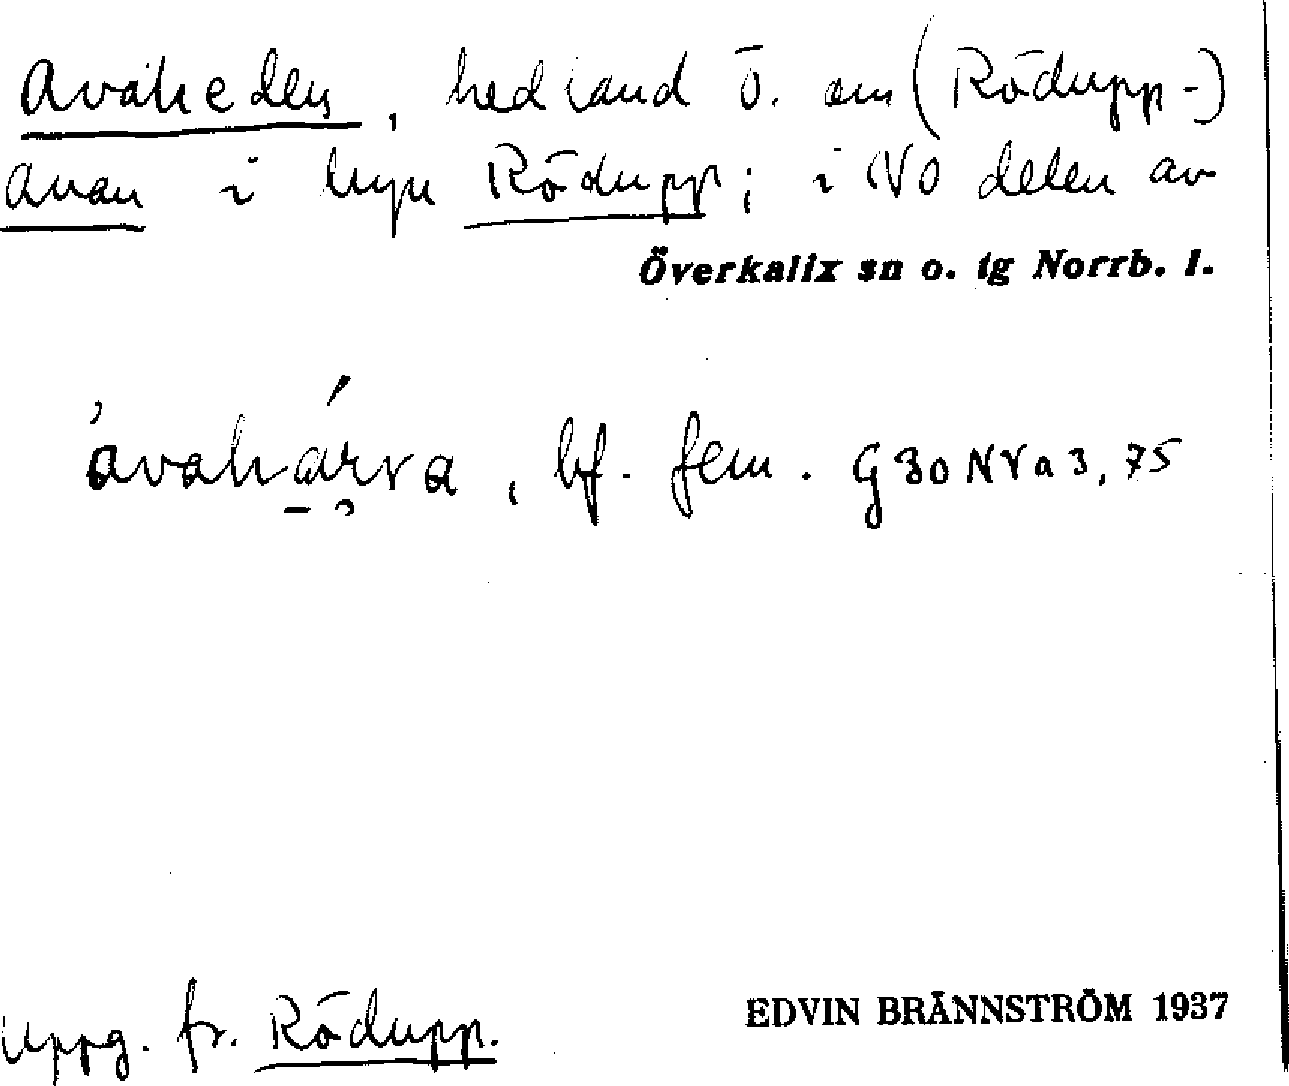 Avaheden, hedland ö. om (Rödupp-)
avan i byn Rödupp; i NO delen av
Överkalix sn o. tg Norrb. l.
bf. fem. G30NVa3,75
Uppg. fr. Rödupp.
EDVIN BRÄNNSTRÖM 1937